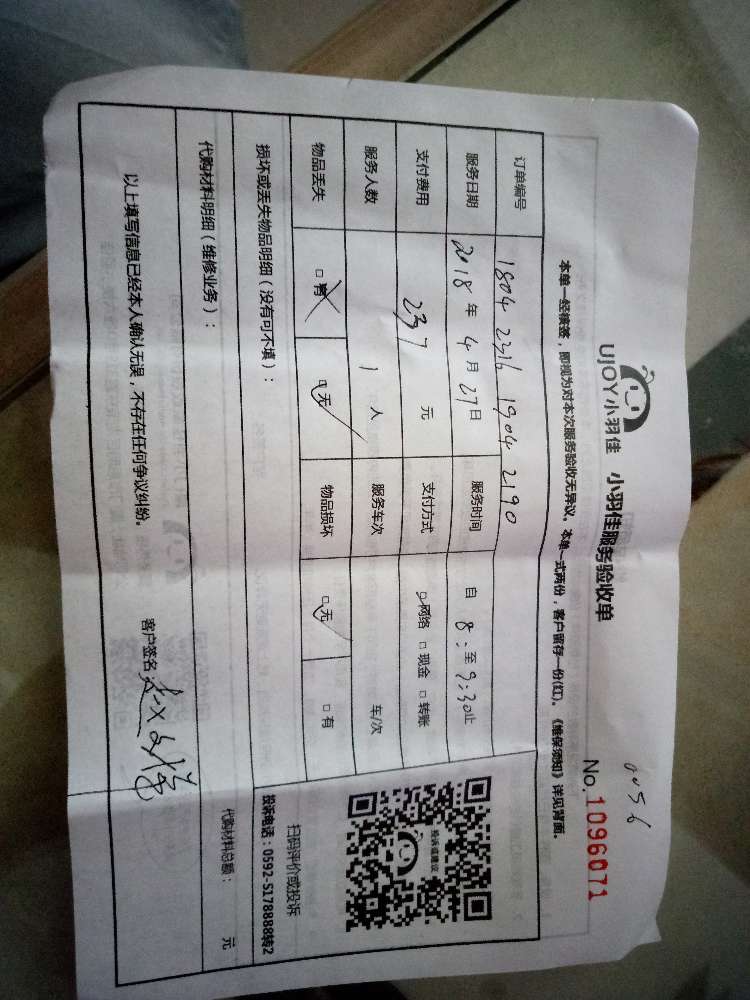 0056
UJOY小羽佳 小羽佳服务验收单 No.1096071
本单一经接签，即视为对本次服务验收无异议。本单一式两份，客户留存一份(红)。《维保须知》详见背面。
订单编号 1804 2316 1904 2190
服务日期 2018年4月27日 服务时间 自8:至9:30止
支付费用 237元 支付方式 □网络 □现金 □转账
服务人数 1人 服务车次 车/次
物品丢失 □有 □无 物品损坏 □无 □有
投诉或建议
扫码评价或投诉
损坏或丢失物品明细（没有可不填）： 投诉电话：0592-5178888转2
代购材料明细（维修业务）： 代购材料总额： 元
以上填写信息已经本人确认无误，不存在任何争议纠纷。 客户签名